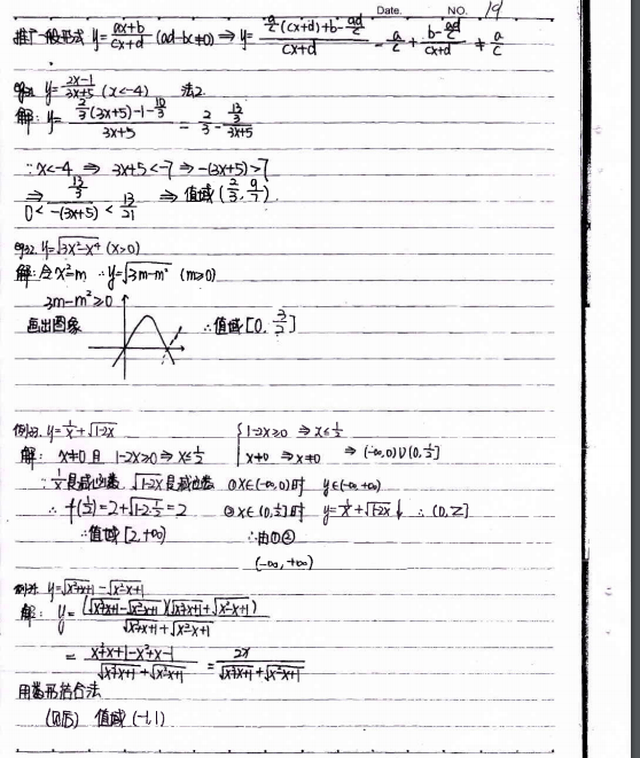 Date. NO. 19
推广一般形式 y=\frac{ax+b}{cx+d} (ad-bc≠0) ⇒ y=\frac{\frac{a}{c}(cx+d)+b-\frac{ad}{c}}{cx+d} = \frac{a}{c}+\frac{b-\frac{ad}{c}}{cx+d} ≠ \frac{a}{c}
例31. y=\frac{2x-1}{3x+5} (x<-4) 法2
解: y=\frac{\frac{2}{3}(3x+5)-1-\frac{10}{3}}{3x+5} = \frac{2}{3}-\frac{\frac{13}{3}}{3x+5}
∵x<-4 ⇒ 3x+5<-7 ⇒ -(3x+5)>7
⇒ 0<\frac{\frac{13}{3}}{-(3x+5)}<\frac{13}{21} ⇒ 值域(\frac{2}{3},\frac{9}{7})
例32. y=\sqrt{3x²-x⁴} (x>0)
解:令x²=m ∴y=\sqrt{3m-m²} (m≥0)
3m-m²≥0
画出图象 ∴值域[0,\frac{3}{2}]
例33. y=\frac{1}{x}+\sqrt{1-2x} { 1-2x≥0 ⇒x≤\frac{1}{2}
解: x≠0 且 1-2x≥0⇒x≤\frac{1}{2} x≠0 ⇒x≠0 ⇒(-∞,0)∪(0,\frac{1}{2}]
∵\frac{1}{x}是减函数 \sqrt{1-2x}是减函数 ①x∈(-∞,0)时 y∈(-∞,+∞)
∴ f(\frac{1}{2})=2+\sqrt{1-2·\frac{1}{2}}=2 ②x∈(0,\frac{1}{2}]时 y=\frac{1}{x}+\sqrt{1-2x}↓ ∴(0,2]
∴值域[2,+∞) ∴由①②
(-∞,+∞)
例34. y=\sqrt{x²+x+1}-\sqrt{x²-x+1}
解: y=\frac{(\sqrt{x²+x+1}-\sqrt{x²-x+1})(\sqrt{x²+x+1}+\sqrt{x²-x+1})}{\sqrt{x²+x+1}+\sqrt{x²-x+1}}
=\frac{x²+x+1-x²+x-1}{\sqrt{x²+x+1}+\sqrt{x²-x+1}}=\frac{2x}{\sqrt{x²+x+1}+\sqrt{x²-x+1}}
用数形结合法
(见后) 值域(-1,1)